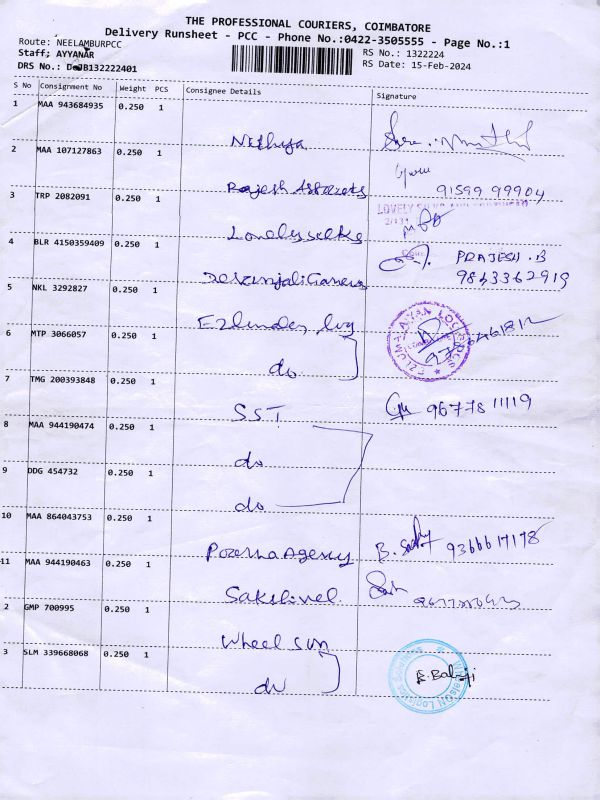 THE PROFESSIONAL COURIERS, COIMBATORE
Delivery Runsheet - PCC - Phone No.:0422-3505555 - Page No.:1
Route: NEELAMBURPCC
RS No.: 1322224
Staff; AYYANAR
RS Date: 15-Feb-2024
DRS No.: B132222401
S No Consignment No Weight PCS Consignee Details Signature
1 MAA 943684935 0.250 1
Nithya
2 MAA 107127863 0.250 1
Rajesh
91599 99904
3 TRP 2082091 0.250 1
LOVELY
Lovely silks
4 BLR 4150359409 0.250 1
PRAJESH . B
9843362919
5 NKL 3292827 0.250 1
6 MTP 3066057 0.250 1
do
7 TMG 200393848 0.250 1
SST 96778 11119
8 MAA 944190474 0.250 1
do
9 DDG 454732 0.250 1
do
10 MAA 864043753 0.250 1
Agency B. 9366617178
11 MAA 944190463 0.250 1
Sakthivel
2 GMP 700995 0.250 1
Wheel sun
3 SLM 339668068 0.250 1
B. Balaji
do